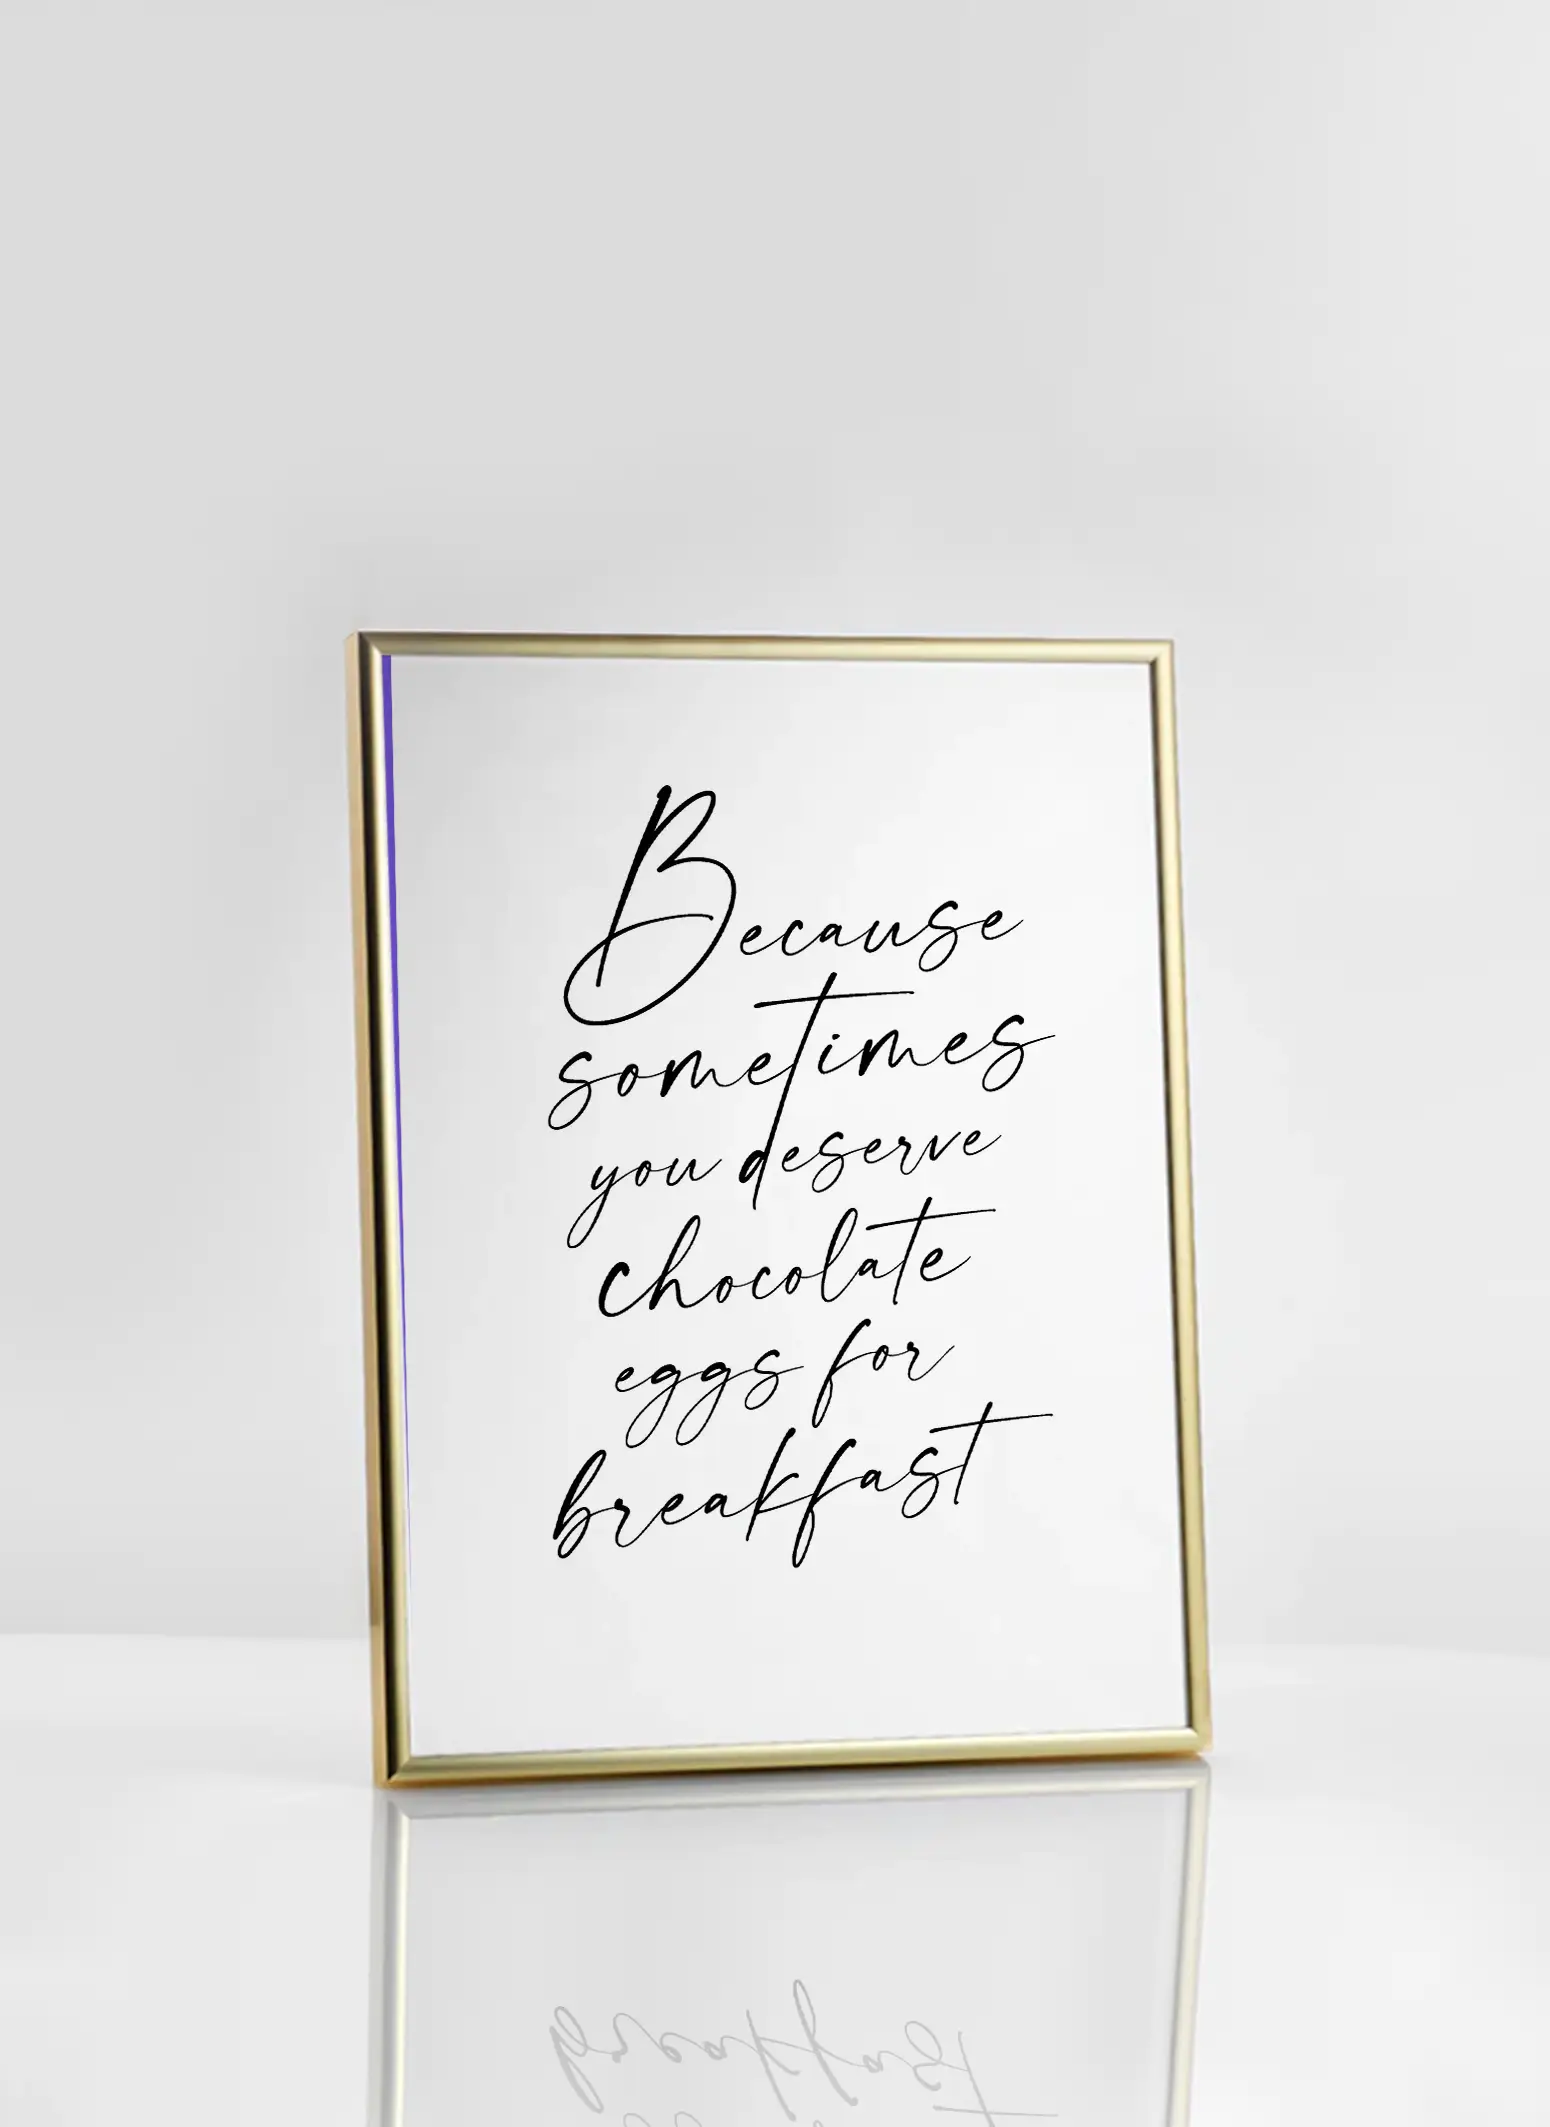 Because
sometimes
you deserve
chocolate
eggs for
breakfast